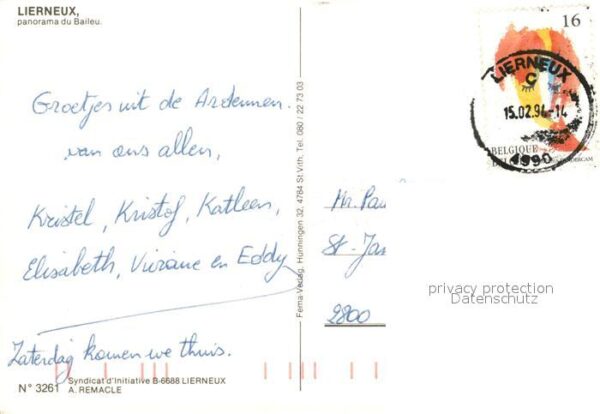 LIERNEUX,
panorama du Baileu.
Groetjes uit de Ardennen.
van ons allen,
Kristel, Kristof, Katleen,
Elisabeth, Viviane en Eddy
Zaterdag komen we thuis.
N° 3261
Syndicat d'Initiative B-6688 LIERNEUX
A. REMACLE
Fema-Verlag, Hünningen 32, 4784 St.Vith, Tel. 080 / 22 73 03
16
BELGIQUE
LIERNEUX
C
15.02.94-14
4990
Mr. Pau
St-Jans
2800
privacy protection
Datenschutz